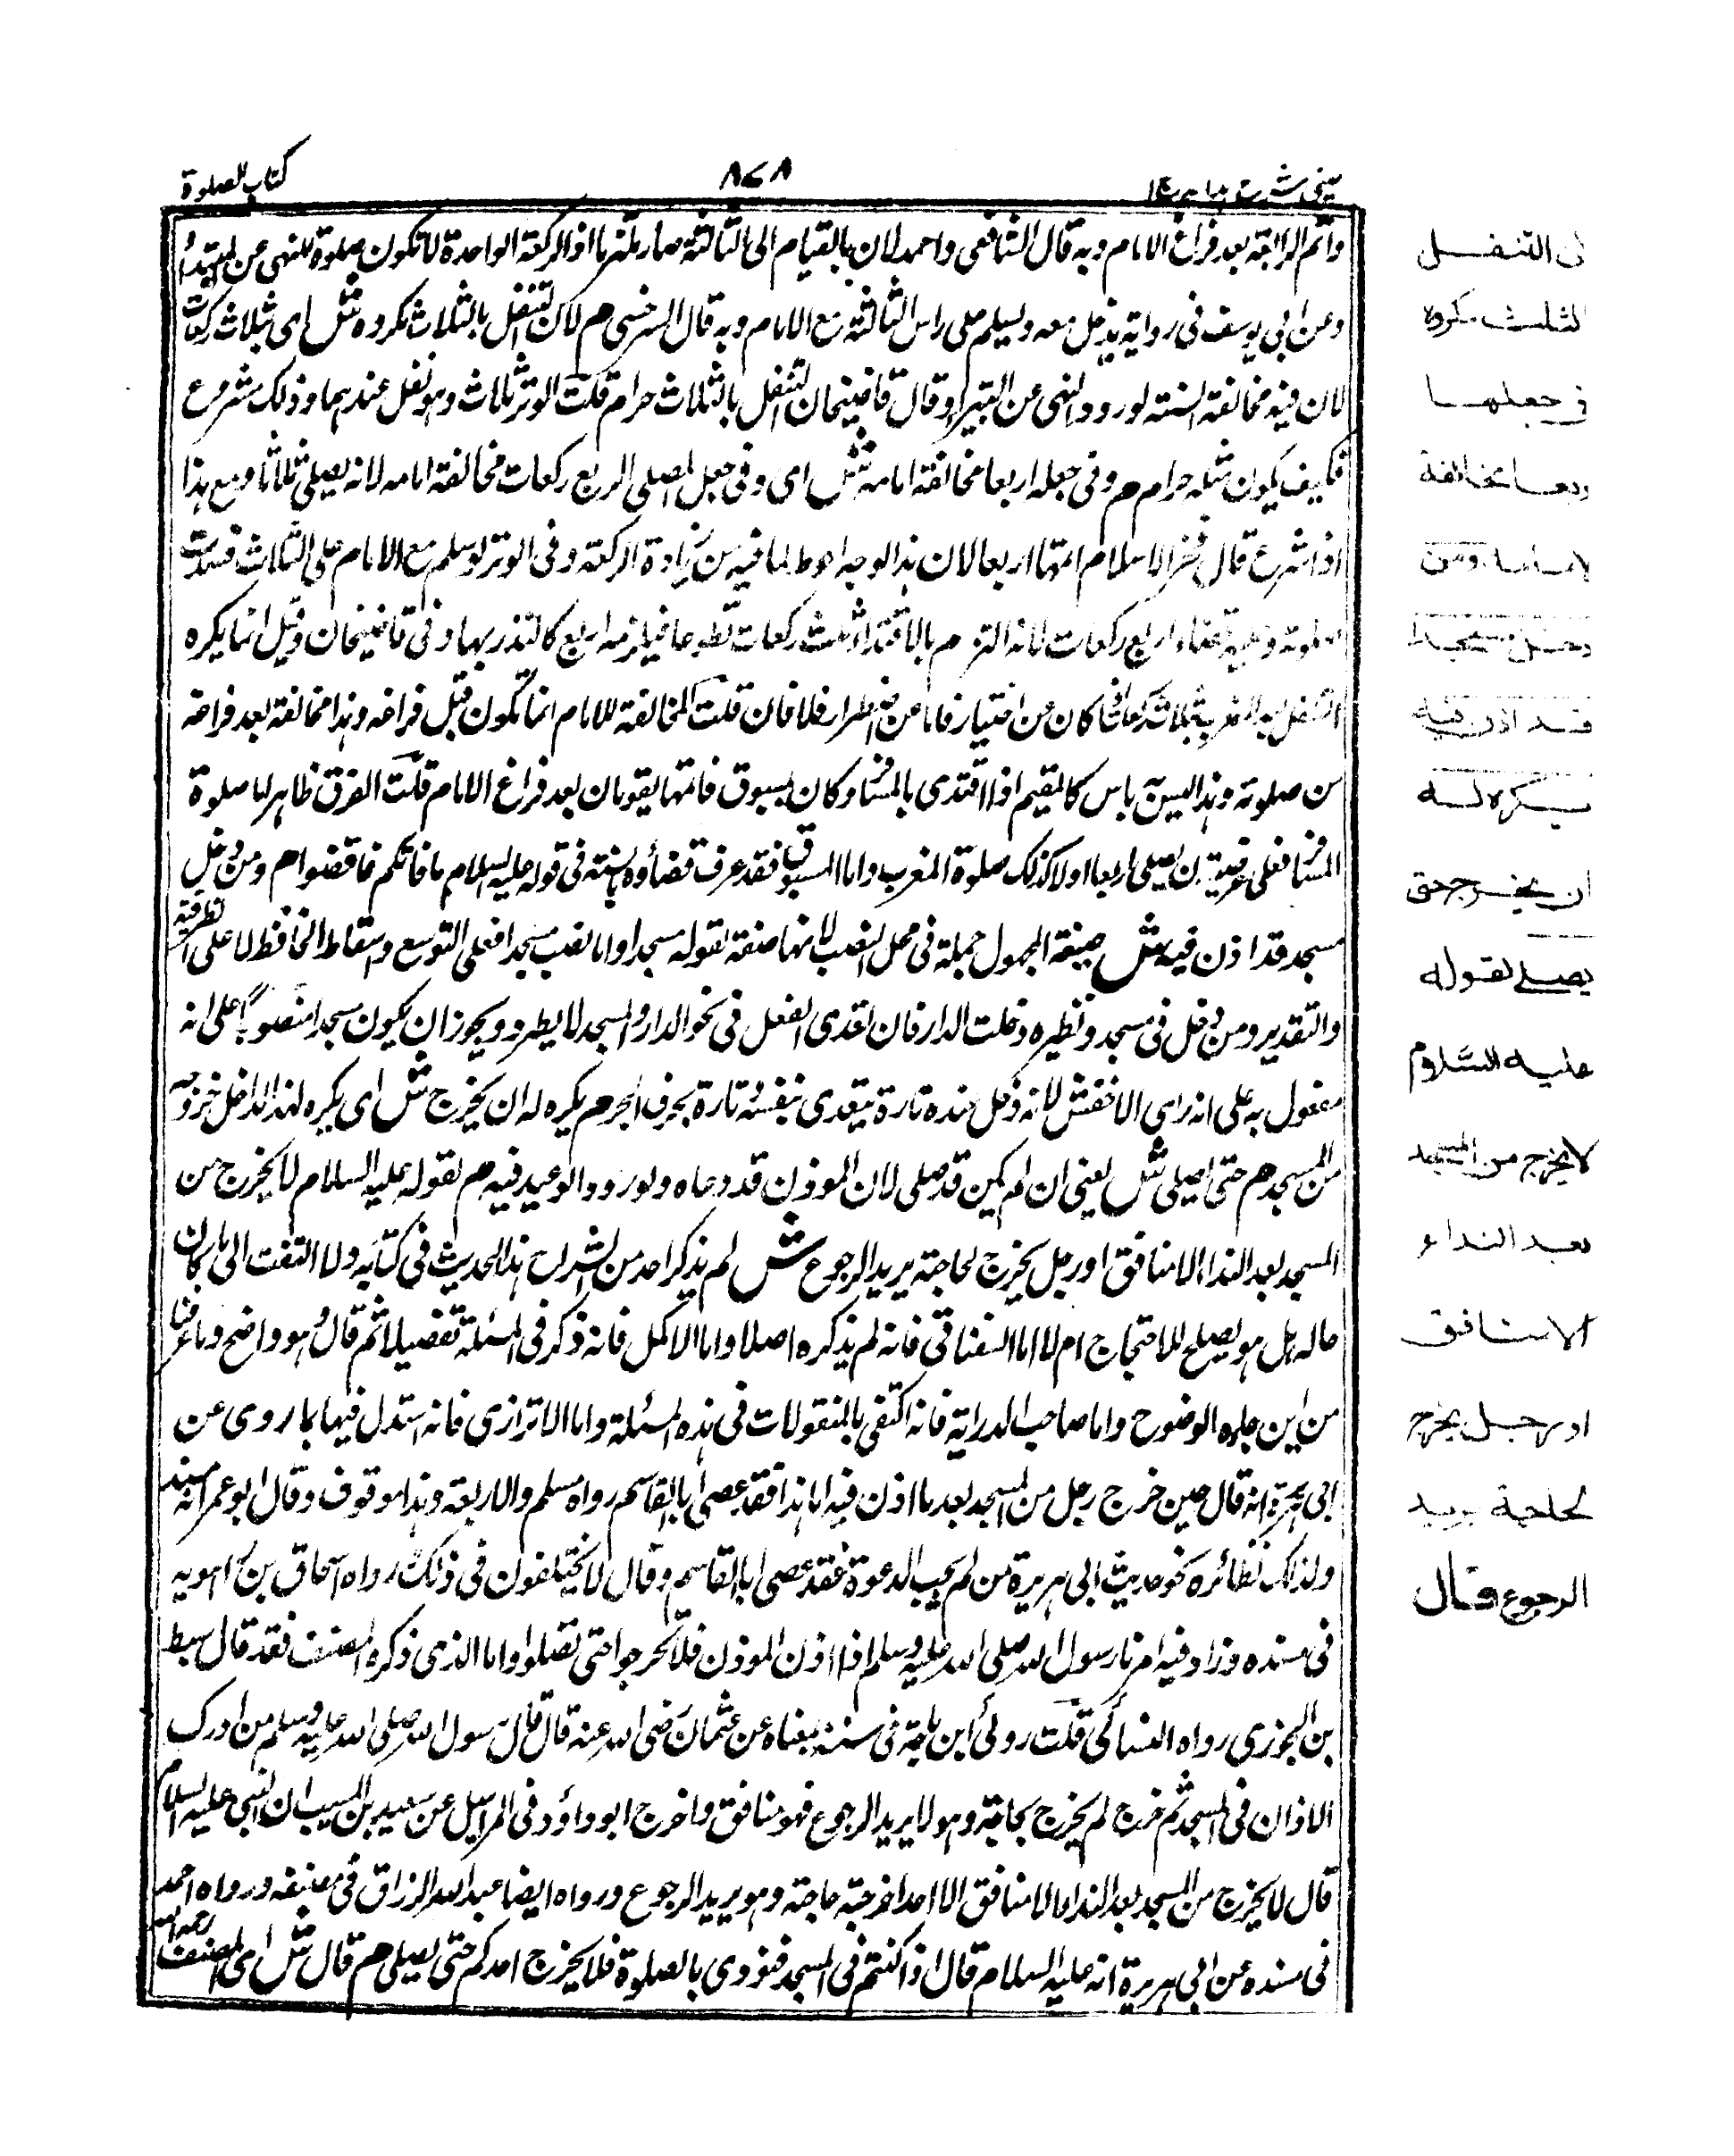 كتاب الصلوة
٨٧٨
عينى شرح هدايه ج١
واتم الرابعة بعد فراغ الامام وبه قال الشافعى واحمد لان بالقيام الى الثالثة صار ملتزما اذ الركعة الواحدة لا تكون صلوة للنهى عن البتيراء
وعن ابى يوسف فى رواية يدخل معه ويسلم على راس الثالثة مع الامام وبه قال السرخسى م لان التنفل بالثلاث مكروه ش اى بثلاث ركعات
لان فيه مخالفة السنة لورود النهى عن البتيراء وقال قاضيخان التنفل بالثلاث حرام قلت الوتر ثلاث وهو نفل عندهما وذلك مشروع
فكيف يكون مثله حرام م وفى جعله اربعا مخالفة امامه ش اى وفى جعل المصلى اربع ركعات مخالفة امامه لانه يصلى ثلاثا ومع هذا
اذا شرع قال فخر الاسلام اتمها اربعا لان هذا الوجه احوط لما فيه من زيادة الركعة وفى الوتر لو سلم مع الامام على الثلاث فسدت
صلوته وعليه قضاء اربع ركعات لانه التزم بالاقتداء ثلث ركعات تطوعا فيلزمه اربع كالنذر بها وفى قاضيخان وقيل انما يكره
التنفل بعد المغرب بثلاث ركعات اذا كان عن اختيار فاما عن اضطرار فلا فان قلت المخالفة للامام انما تكون قبل فراغه وهذا مخالفة بعد فراغه
من صلوته وهذا ليس به باس كالمقيم اذا اقتدى بالمسافر وكان مسبوق فانهما يقومان بعد فراغ الامام قلت الفرق ظاهر اما صلوة
المسافر فعلى عرضية ان يصلى اربعا اولا كذلك صلوة المغرب واما المسبوق فقد عرف قضاؤه بالسنة فى قوله عليه السلام ما فاتكم فاقضوا م ومن دخل
مسجد قد اذن فيه ش صيغة المجهول جملة فى محل النصب لانها صفة لقوله مسجدا واما نصب مسجدا فعلى التوسع واسقاط الخافض لا على الظرفية
والتقدير ومن دخل فى مسجد ونظيره دخلت الدار فان تعدى الفعل فى نحو الدار والمسجد لا يطرد ويجوز ان يكون مسجدا منصوبا على انه
مفعول به على انه راى الاخفش لانه دخل عنده تارة يتعدى بنفسه وتارة بحرف الجر م يكره له ان يخرج ش اى يكره لهذا الداخل خروجه
من المسجد م حتى يصلى ش يعنى ان لم يكن قد صلى لان الموذن قد دعاه ولورود الوعيد فيه م لقوله عليه السلام لا يخرج من
المسجد بعد النداء الا منافق او رجل يخرج لحاجة يريد الرجوع ش لم يذكر احد من الشراح هذا الحديث فى كتابه ولا التفت الى بيان
حاله هل هو يصلح للاحتجاج ام لا اما السغناقى فانه لم يذكره اصلا واما الاكمل فانه ذكر فى المسئلة تفصيلا ثم قال وهو واضح وما عرفنا
من اين جاءه الوضوح واما صاحب الدراية فانه اكتفى بالمنقولات فى هذه المسئلة واما الاترازى فانه استدل فيها بما روى عن
ابى هريرة انه قال حين خرج رجل من المسجد بعد ما اذن فيه اما هذا فقد عصى ابا القاسم رواه مسلم والاربعة وهذا موقوف وقال ابو عمر انه مسند
ولذلك نظائره نحو حديث ابى هريرة من لم يجب الدعوة فقد عصى ابا القاسم وقال لا يختلفون فى ذلك رواه اسحاق بن راهويه
فى مسنده وزاد فيه امرنا رسول الله صلى الله عليه وسلم اذا اذن الموذن فلا تخرجوا حتى تصلوا واما الذى ذكره المصنف فقد قال سبط
بن الجوزى رواه النسائى قلت روى ابن ماجة فى سننه بمعناه عن عثمان رضى الله عنه قال قال رسول الله صلى الله عليه وسلم من ادرك
الاذان فى المسجد ثم خرج لم يخرج بحاجة وهو لا يريد الرجوع فهو منافق واخرج ابو داؤد فى المراسيل عن سعيد بن المسيب ان النبى عليه السلام
قال لا يخرج من المسجد بعد النداء الا منافق الا احد اخرجته حاجة وهو يريد الرجوع ورواه ايضا عبد الرزاق فى مصنفه ورواه احمد
فى مسنده عن ابى هريرة انه عليه السلام قال اذا كنتم فى المسجد فنودى بالصلوة فلا يخرج احدكم حتى يصلى م قال ش اى المصنف رحمه الله
لان التنفل
بالثلث مكروه
و فى جعلها
اربعا مخالفة
لامامه ومن
دخل مسجدا
قد اذن فيه
يكره له
ان يخرج حتى
يصلى لقوله
عليه السلام
لا يخرج من المسجد
بعد النداء
الا منافق
او رجل يخرج
لحاجة يريد
الرجوع قال